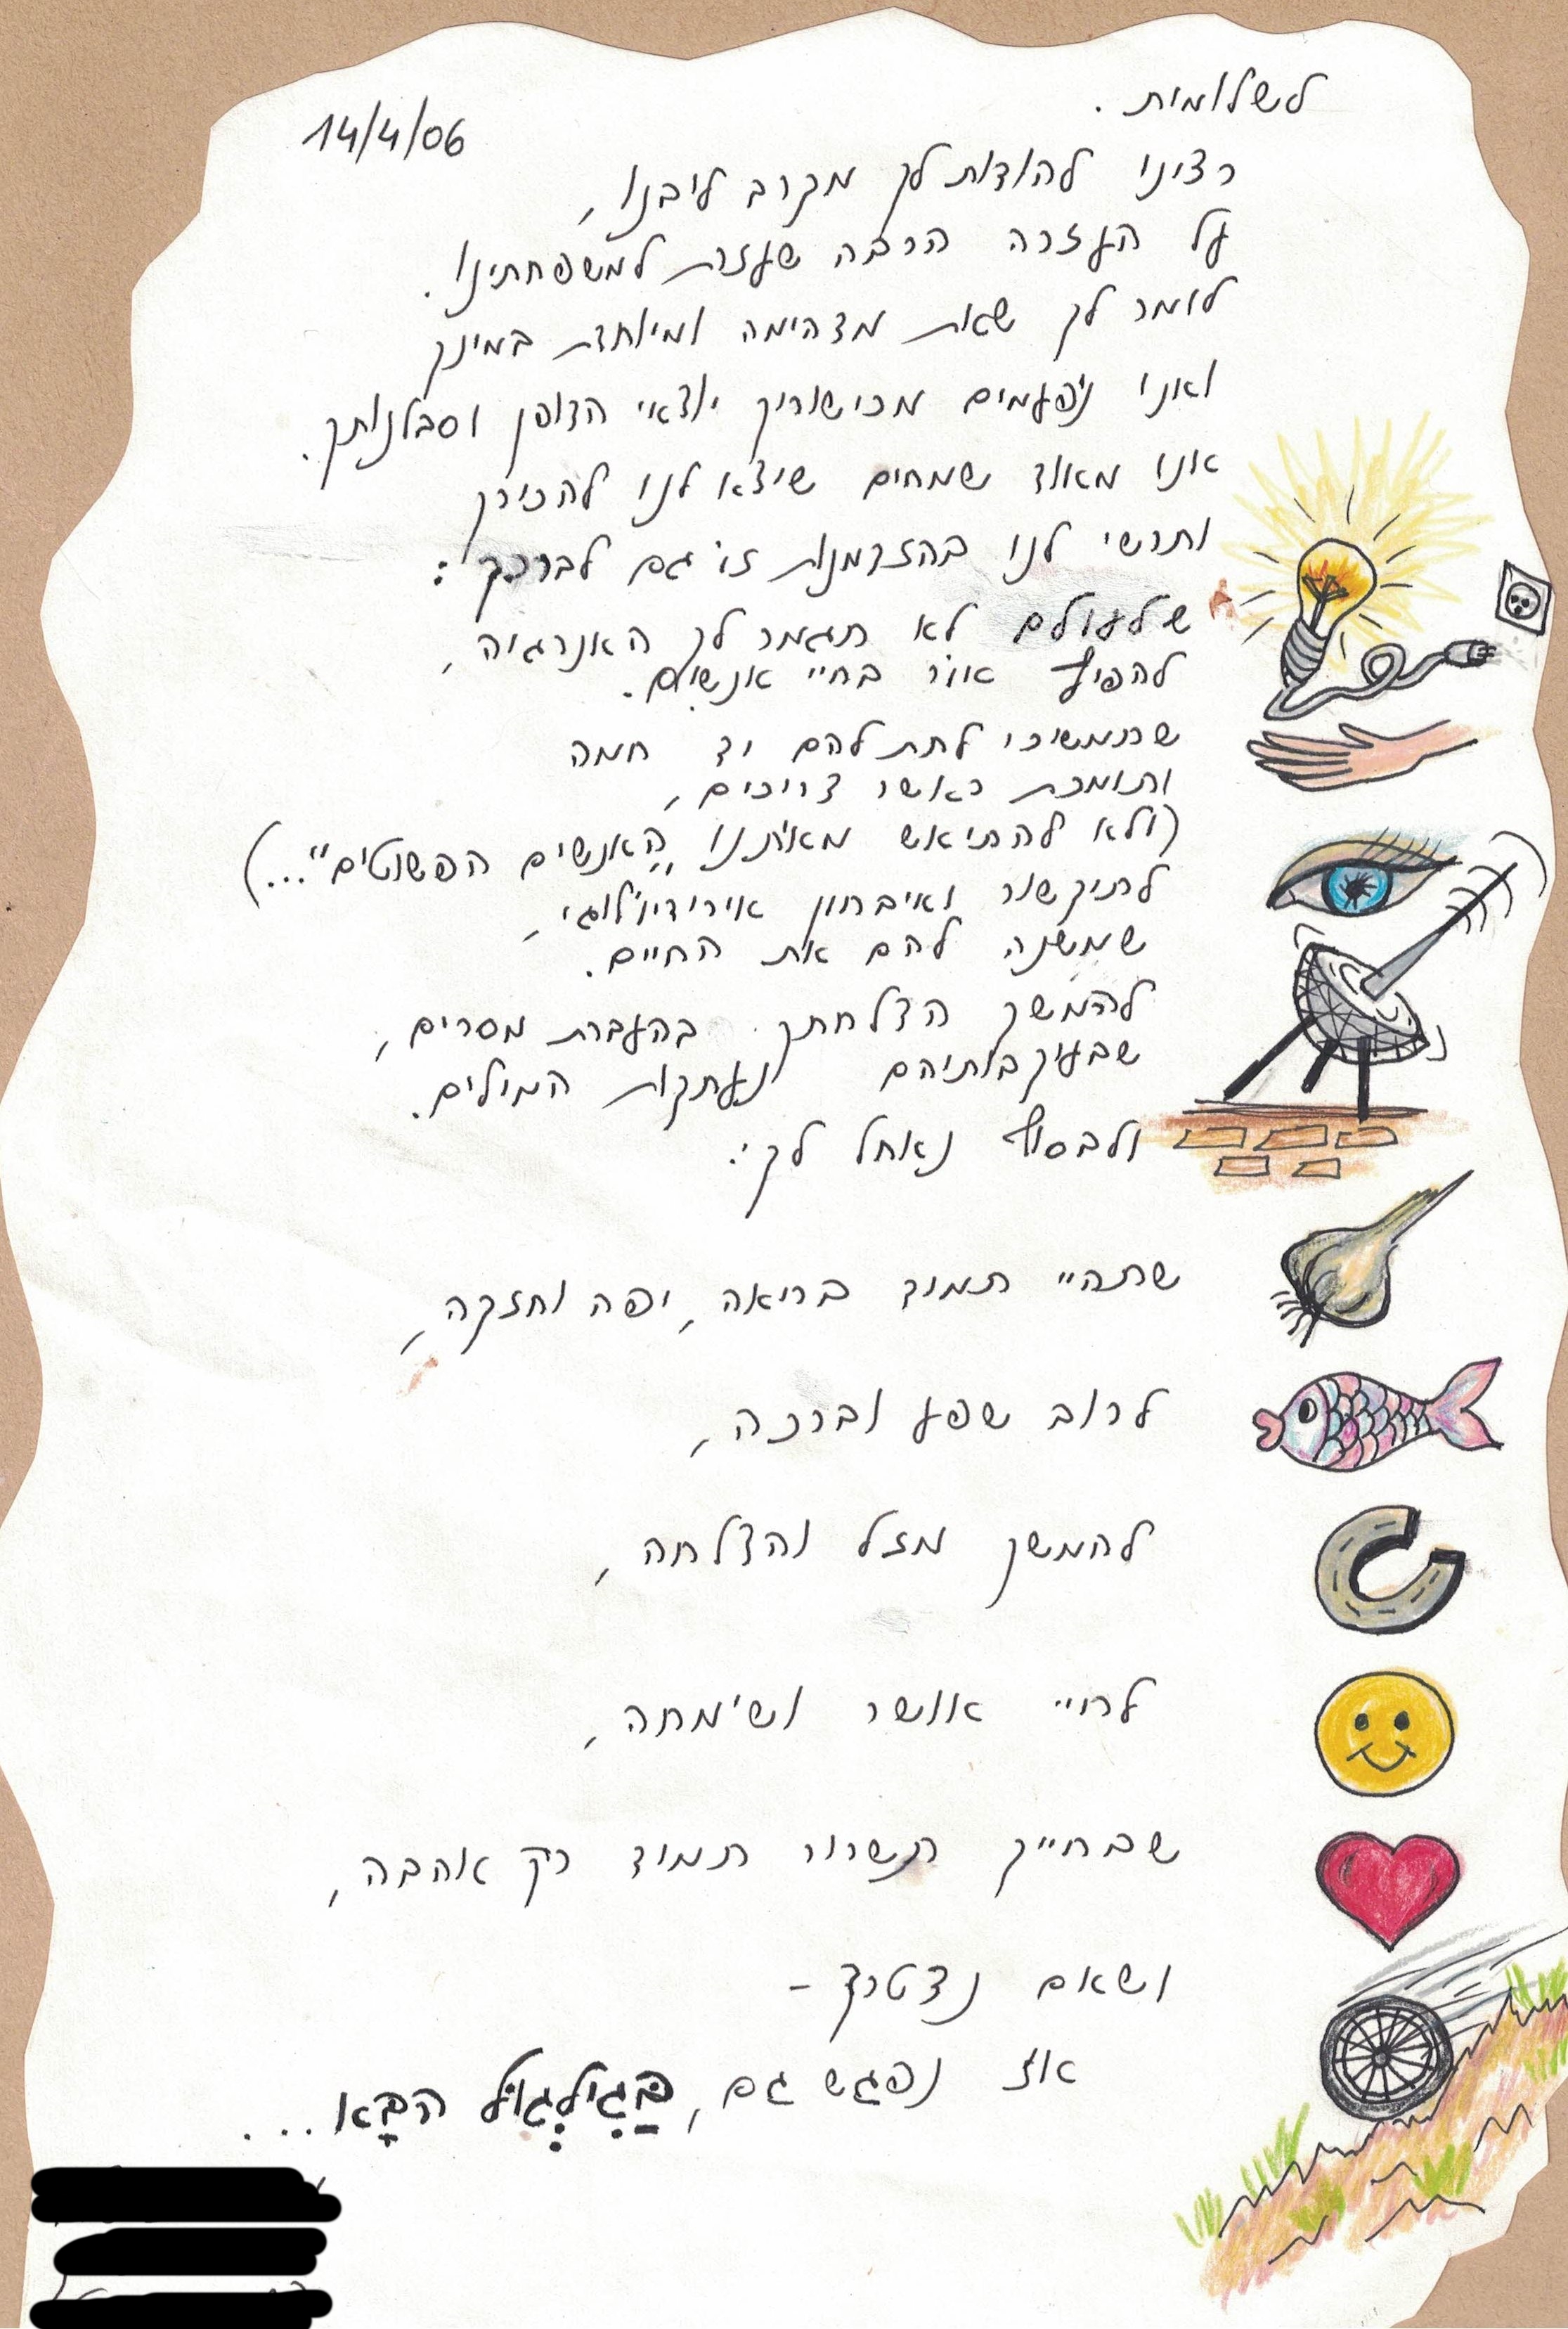 לשלומית.
14/4/06
רצינו להודות לך מקרב ליבנו,
על העזרה הרבה שעזרת למשפחתינו.
לומר לך שאת מדהימה ומיוחדת במינך
ואנו נפעמים מכישוריך יוצאי הדופן וסבלנותך.
אנו מאוד שמחים שיצא לנו להכירך
ותרשי לנו בהזדמנות זו גם לברכך:
שלעולם לא תגמר לך האנרגיה,
להפיץ אור בחיי אנשים.
שתמשיכי לתת להם יד חמה
ותומכת כאשר צריכים,
(ולא להתיאש מאיתנו "האנשים הפשוטים"...)
לתיקשור ואיבחון אירידיולוגי,
שמשנה להם את החיים.
להמשך הצלחתך בהעברת מסרים,
שבעיקבותיהם נעתקות המילים.
ולבסוף נאחל לך:
שתהיי תמיד בריאה, יפה וחזקה,
לרוב שפע וברכה,
להמשך מזל והצלחה,
לחיי אושר ושימחה,
שבחייך תשרור תמיד רק אהבה,
ושאם נצטרך -
אז נפגש גם, בַּגִילְגוּל הבָּא...